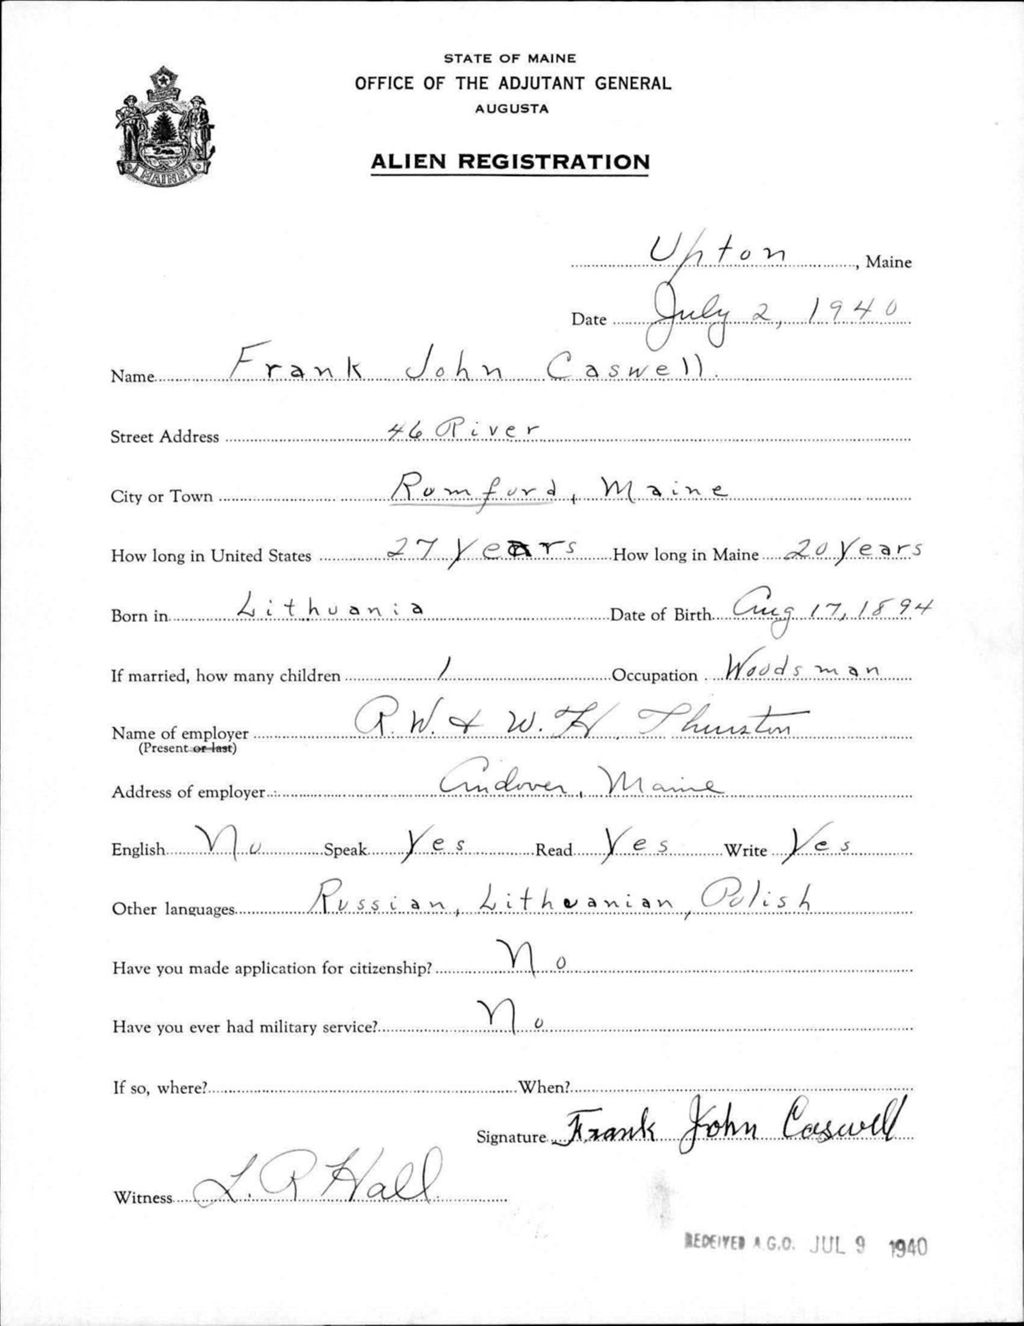 STATE OF MAINE
OFFICE OF THE ADJUTANT GENERAL
AUGUSTA
ALIEN REGISTRATION
MAINE
Upton, Maine
Date July 2, 1940
Name Frank John Caswell.
Street Address 46 River
City or Town Rumford, Maine
How long in United States 27 Years How long in Maine 20 Years
Born in Lithuania Date of Birth Aug 17, 1894
If married, how many children 1 Occupation Woodsman
Name of employer R. W. & W. H. Thurston
(Present or last)
Address of employer Andover, Maine
English No Speak Yes Read Yes Write Yes
Other languages Russian, Lithuanian, Polish
Have you made application for citizenship? No
Have you ever had military service? No
If so, where? When?
Signature Frank John Caswell
Witness L. R Hall
RECEIVED A.G.O. JUL 9 1940